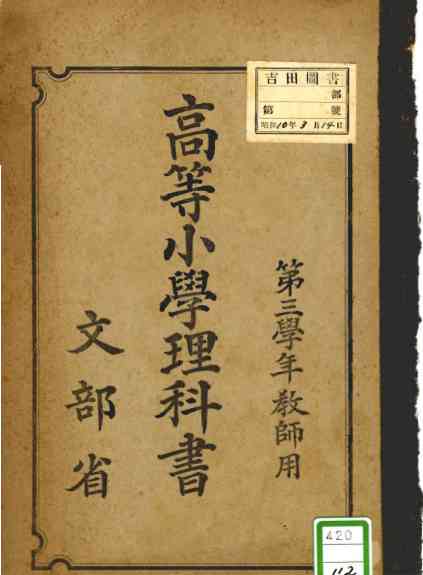 吉田圖書
部
第　　號
昭和10年3月14日
第三學年教師用
高等小學理科書
文部省
420
112